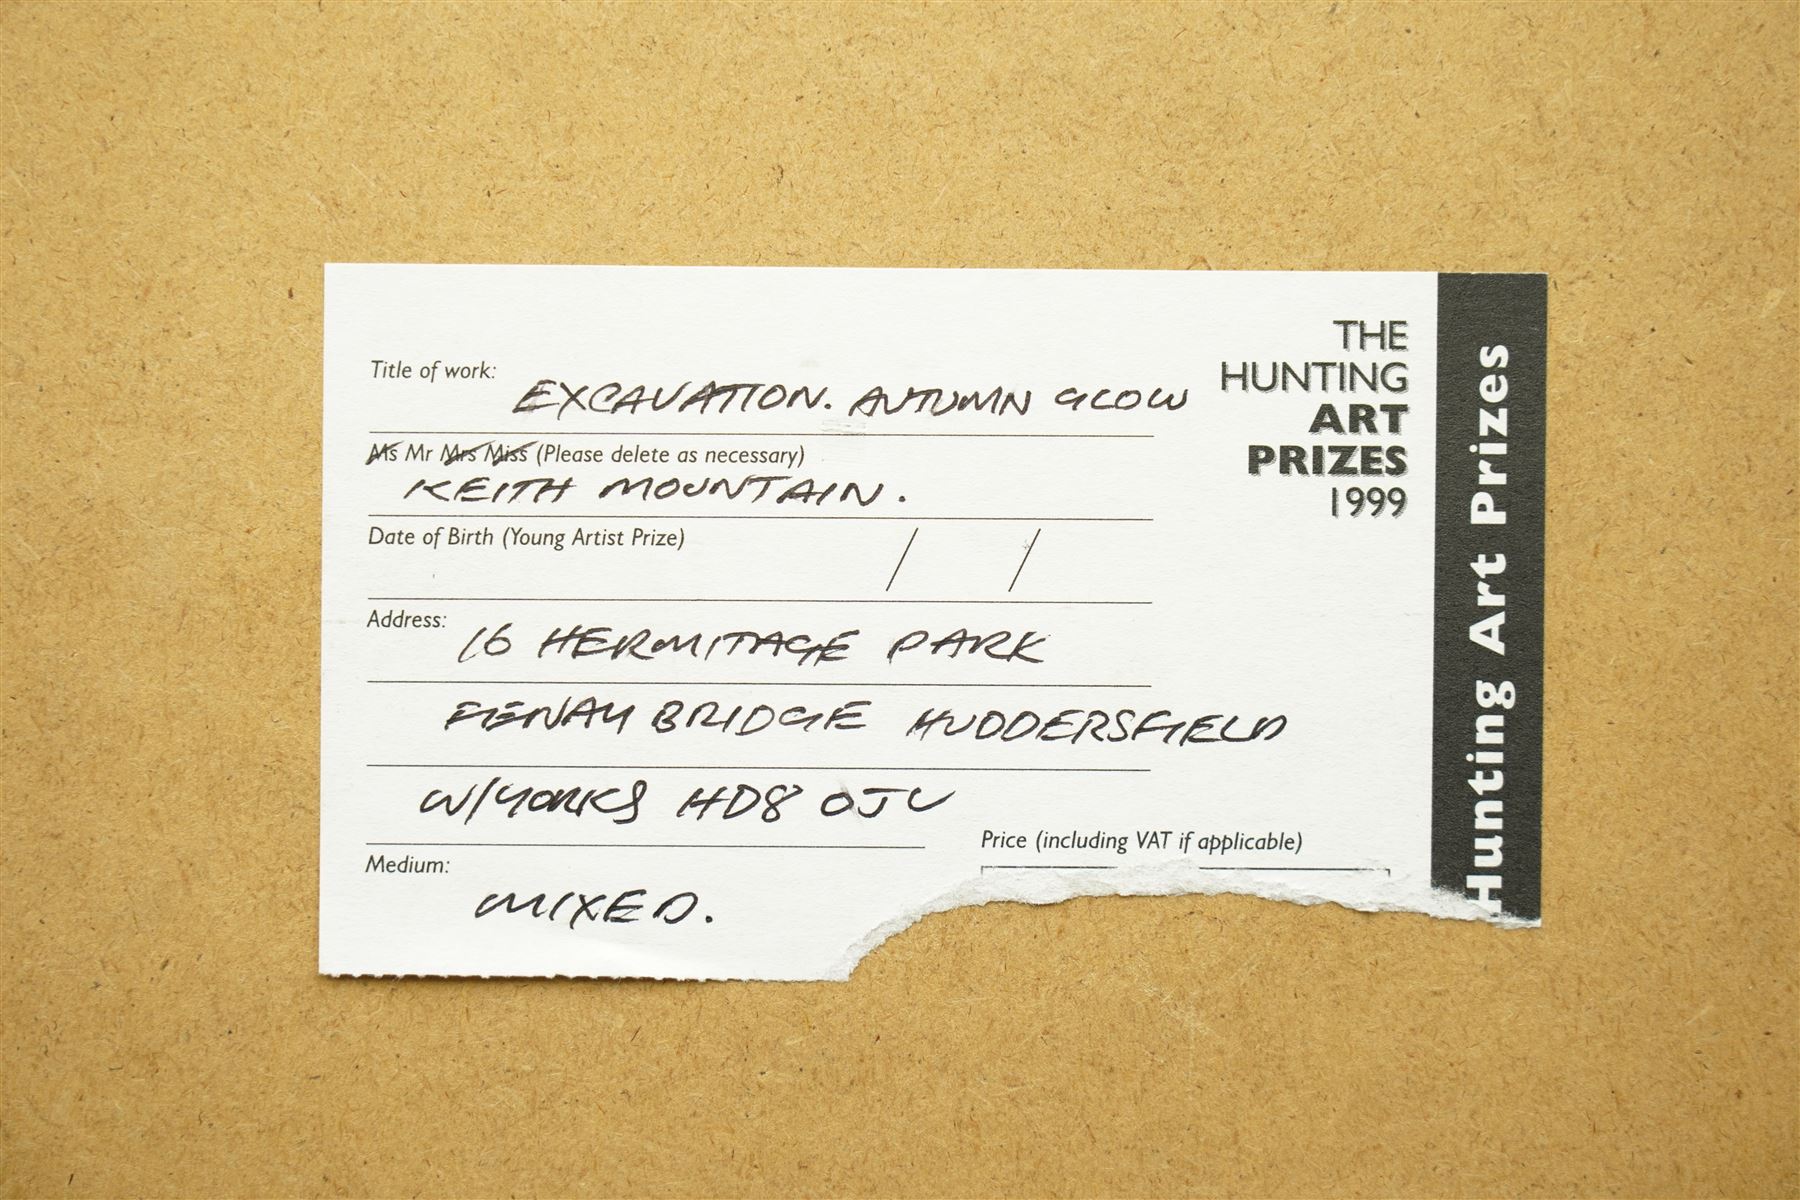 THE
HUNTING
ART
PRIZES
1999
Hunting Art Prizes
Title of work:
EXCAVATION. AUTUMN GLOW
Ms Mr Mrs Miss (Please delete as necessary)
KEITH MOUNTAIN.
Date of Birth (Young Artist Prize)
/ /
Address:
16 HERMITAGE PARK
FENAY BRIDGE HUDDERSFIELD
W/YORKS HD8 0JU
Price (including VAT if applicable)
Medium:
MIXED.